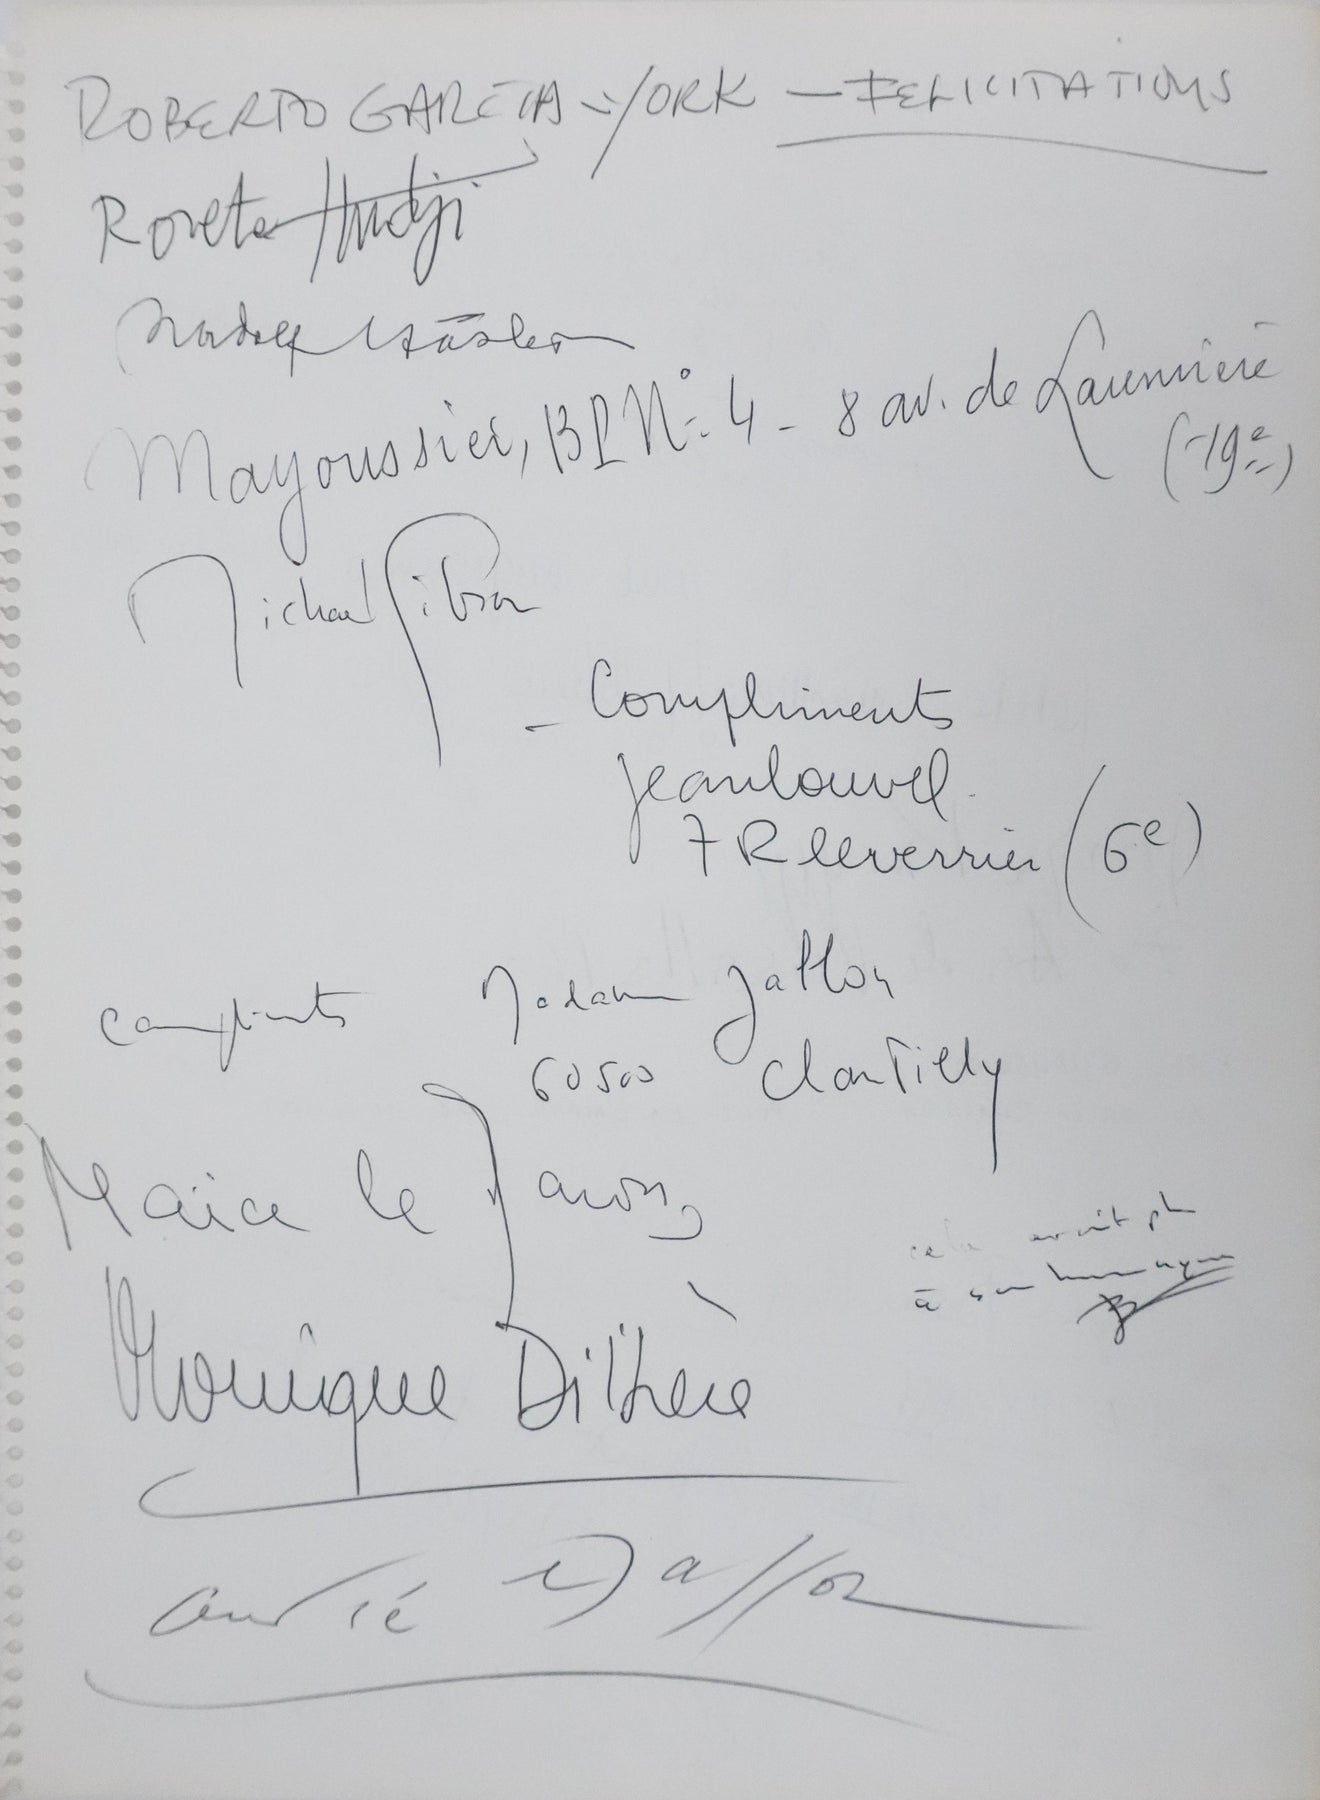 ROBERTO GARCIA-YORK — FELICITATIONS
Roreta Hudji
Rudolf Häsler
Mayoussier, BP N°: 4 - 8 av. de Laumière
(19e)
Michael Gibson
- Compliments
Jean Louvel
7 R Leverrier (6e)
compliments Madame Jallon
60500 Chantilly
Maïce le
Monique Dithère
André